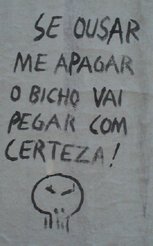 SE OUSAR
ME APAGAR
O BICHO VAI
PEGAR COM
CERTEZA!